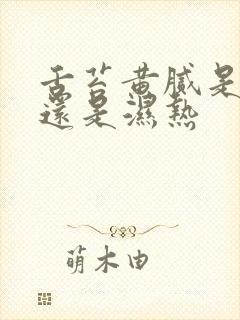 舌苔黄腻是
還是濕熱
萌木由